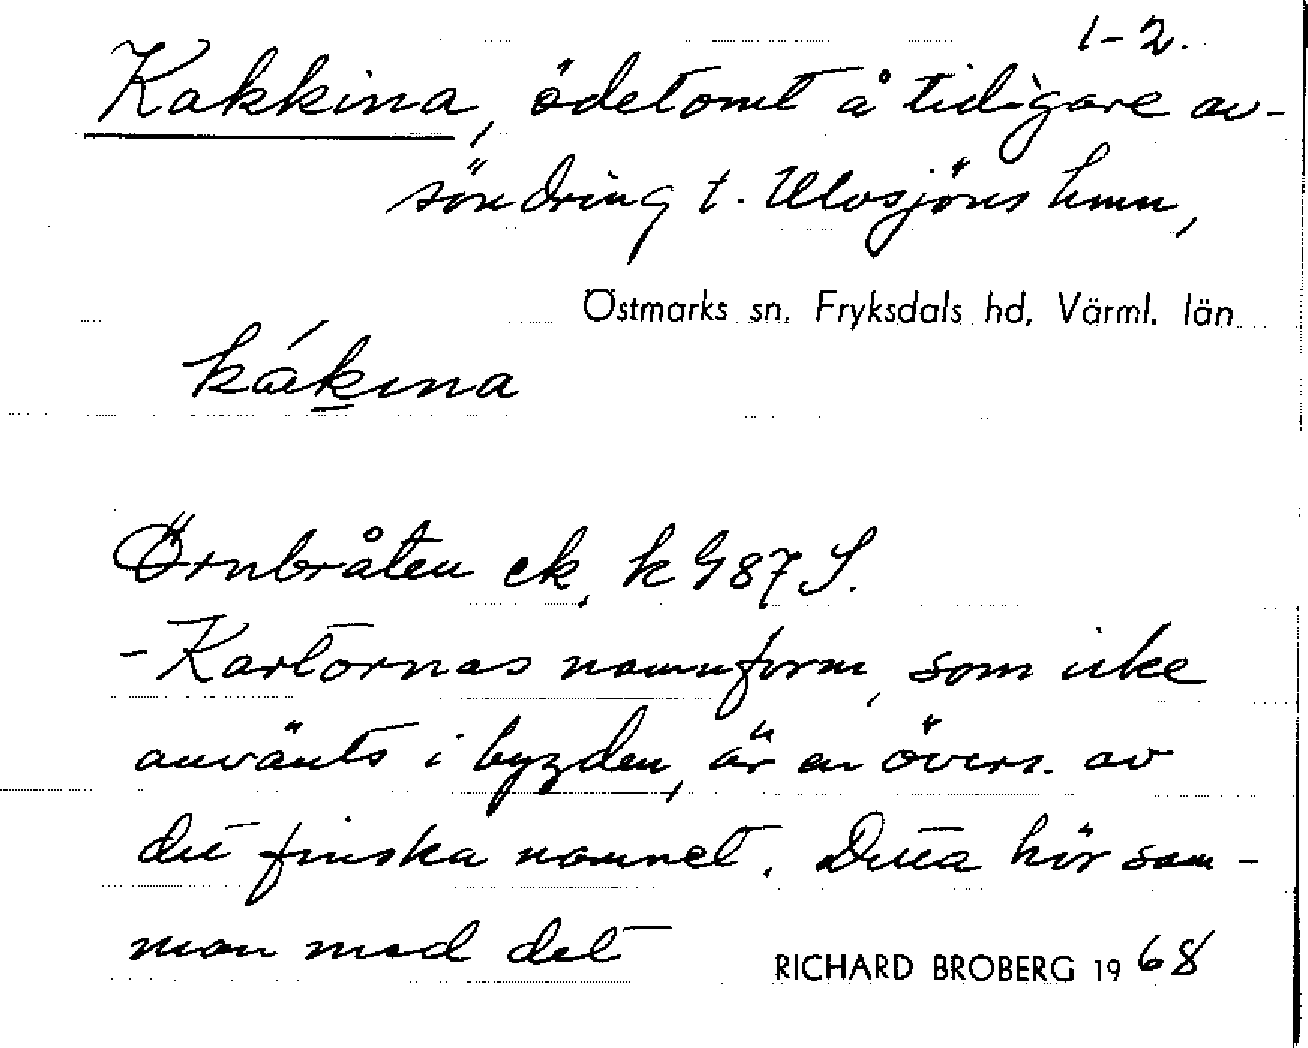 1-2.
Kakkina, ödetomt å tidigare av-
söndring t. Ulvsjöns hmn,
Östmarks sn, Fryksdals hd, Värml. län
kákina
Örnbråten ek, k 987 S.
- Kartornas namnform, som icke
använts i bygden, är en övers. av
det finska namnet. Detta hör sam-
man med det
RICHARD BROBERG 1968